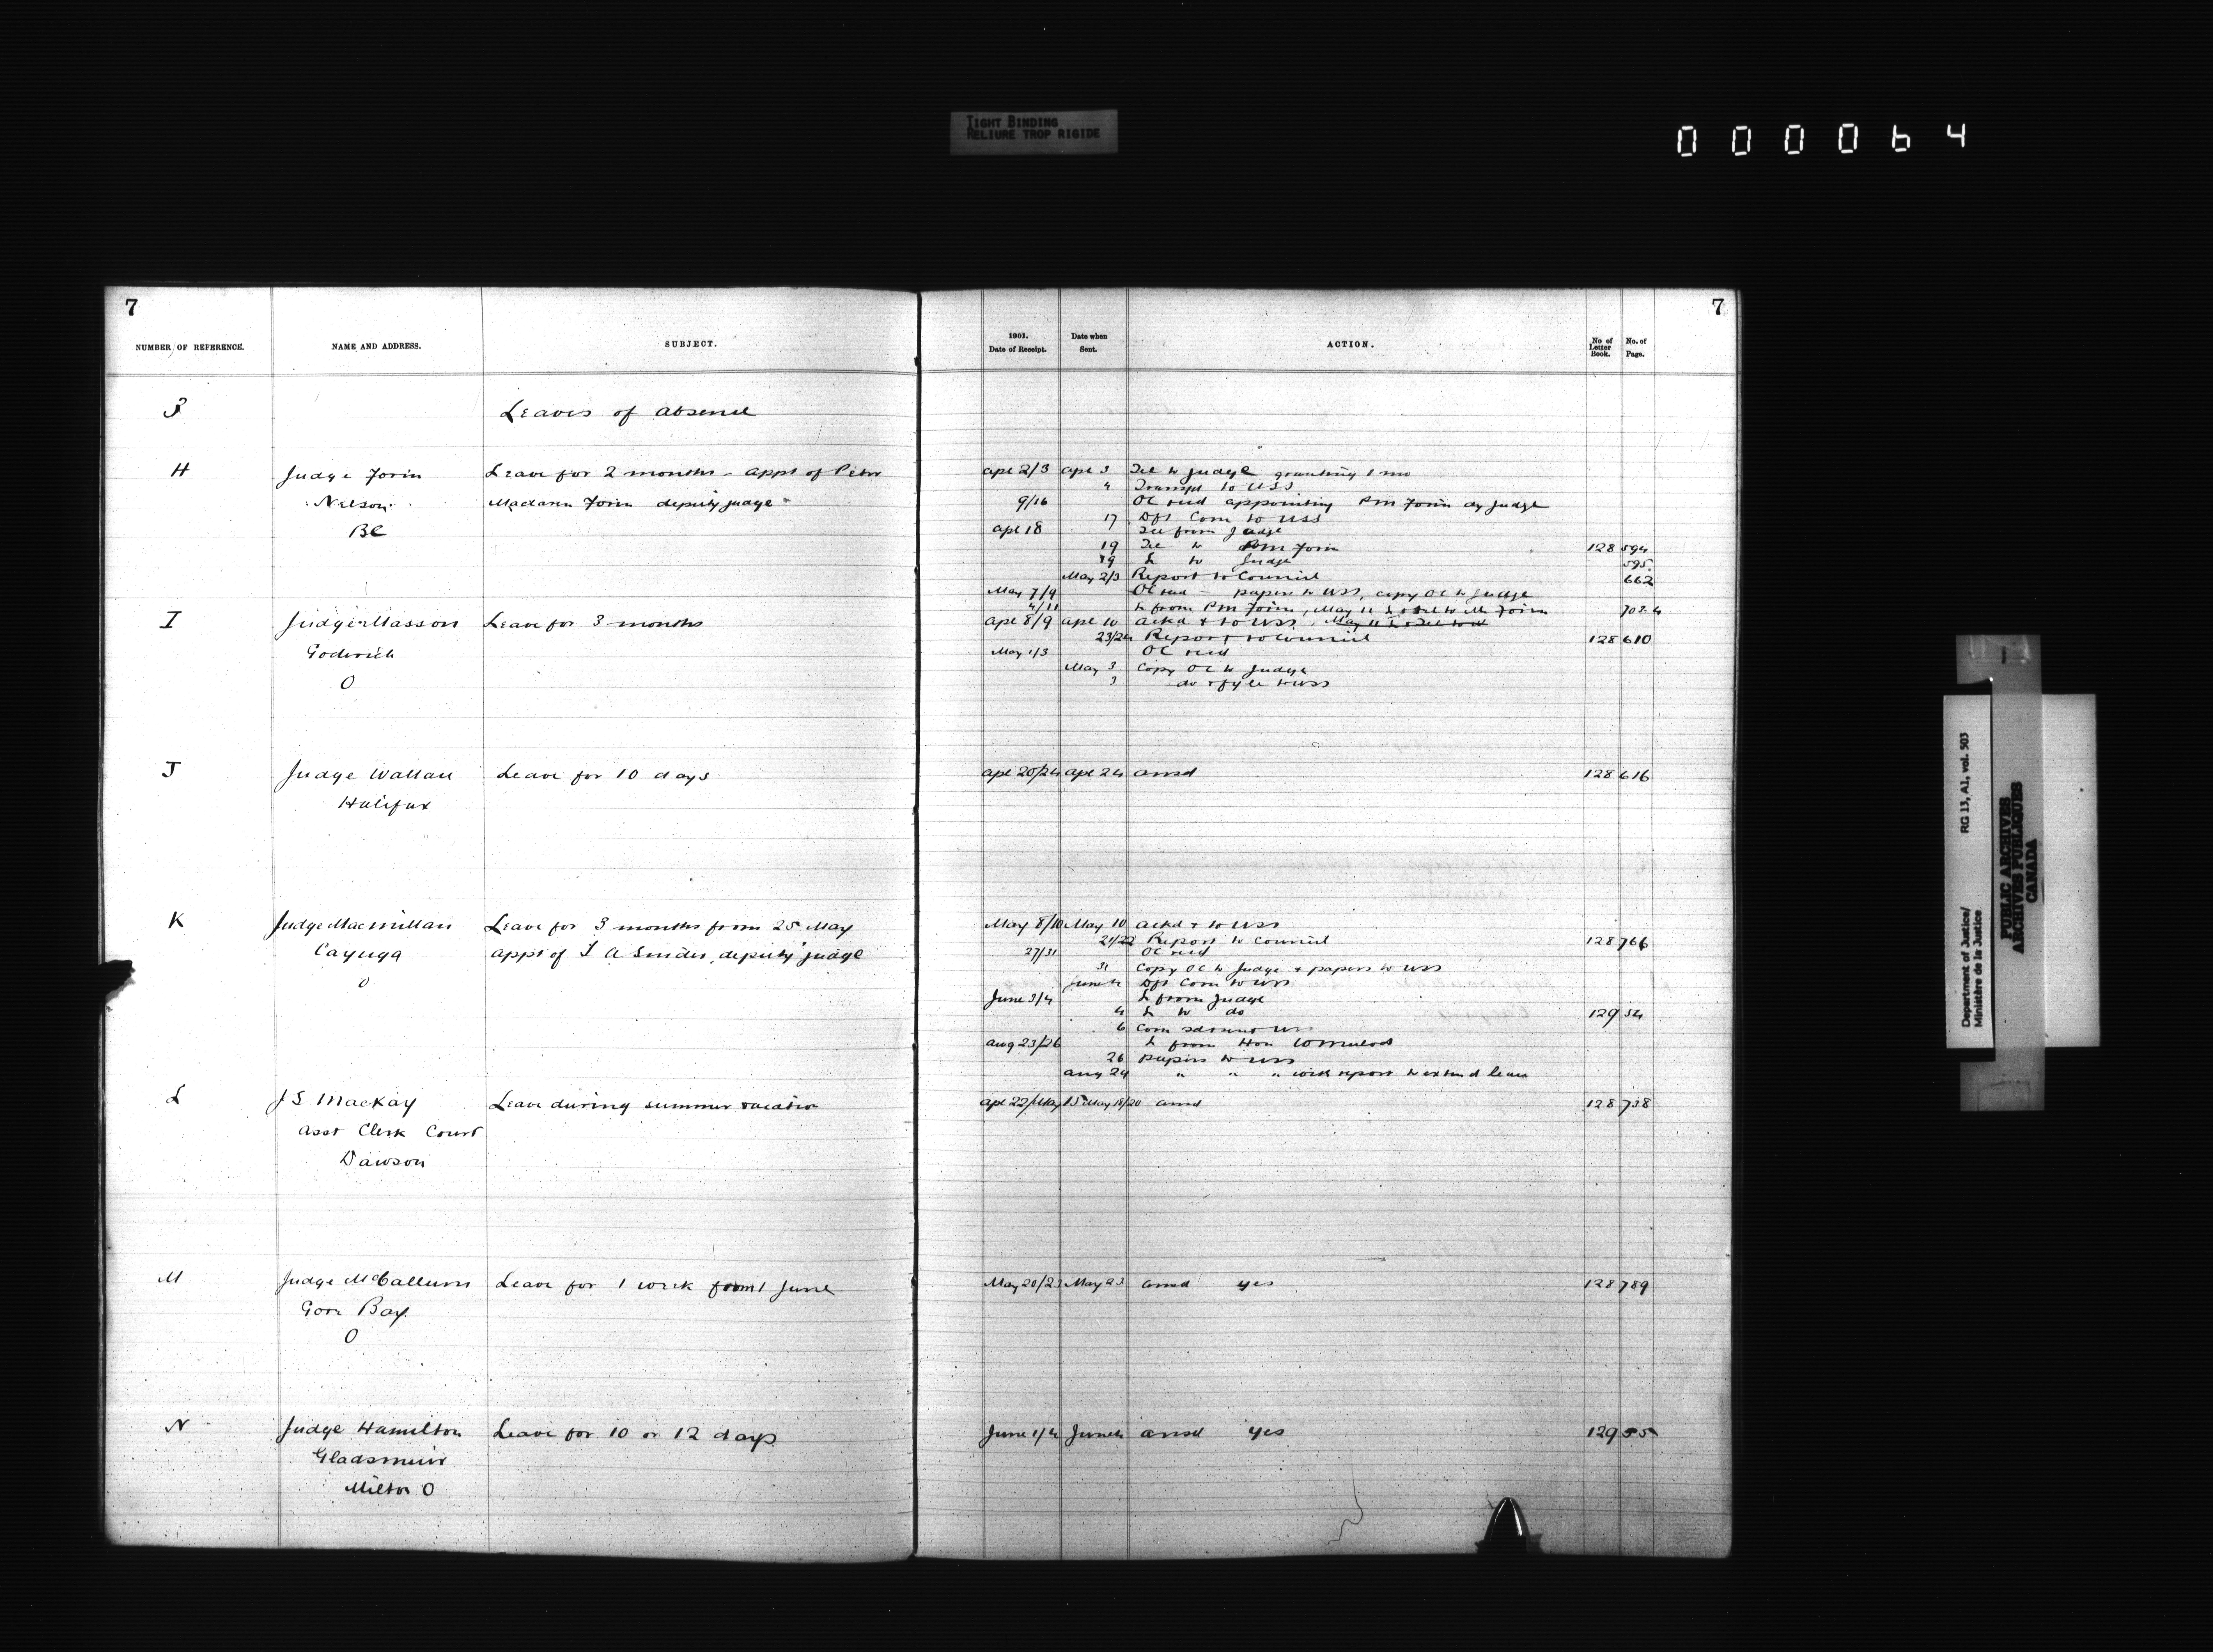 TIGHT BINDING
RELIURE TROP RIGIDE
000064
7
NUMBER OF REFERENCE. NAME AND ADDRESS. SUBJECT.
Leaves of absence
H Judge Forin Leave for 2 months - appt of Peter
Nelson Forin deputy judge
BC
I Judge Masson Leave for 3 months
Goderich
O
J Judge Wallace Leave for 10 days
Halifax
K Judge Macmillan Leave for 3 months from 25 May
Cayuga appt of A Snider, deputy judge
O
L J S MacKay Leave during summer vacation
Asst Clerk Court
Dawson
M Judge McCallum Leave for 1 week from 1 June
Gore Bay
O
N Judge Hamilton Leave for 10 or 12 days
Gladsmuir
Milton O
7
1901. Date of Receipt. Date when Sent. ACTION. No of Letter Book. No. of Page.
Apl 2/3 Apl 3 Tel to Judge granting 1 mo
4 Transmd to USS
9/16 OC recd appointing PM Forin dy Judge
17 Dft Com to USS
Apl 18 Tel from Judge
19 Tel to PM Forin 128 594
19 L to Judge 595
May 2/3 Report to Council 662
May 7/9 OC recd - papers to USS, copy OC to Judge
4/11 L from PM Forin, May 11 L to Forin
Apl 8/9 Apl 10 Ackd + to USS
23/24 Report to Council 128 610
May 1/3 OC recd
May 3 Copy OC to Judge
3 do + fyle to USS
Apl 20/24 Apl 24 ansd 128 616
May 8/10 May 10 Ackd + to USS
21/22 Report to Council 128 766
27/31 OC recd
31 Copy OC to Judge + papers to USS
June 4 Dft Com to USS
June 3/4 L from Judge
4 L to do 129 54
6 Com
Aug 23/26 L from Hon W Mulock
26 papers to USS
Aug 24 " " " with report to extend leave
Apl 22/May 15 May 18/20 ansd 128 738
May 20/23 May 23 ansd yes 128 789
June 1/4 June 4 ansd yes 129 55
Department of Justice/ RG 13, A1, vol. 503
Ministère de la Justice
PUBLIC ARCHIVES
ARCHIVES PUBLIQUES
CANADA